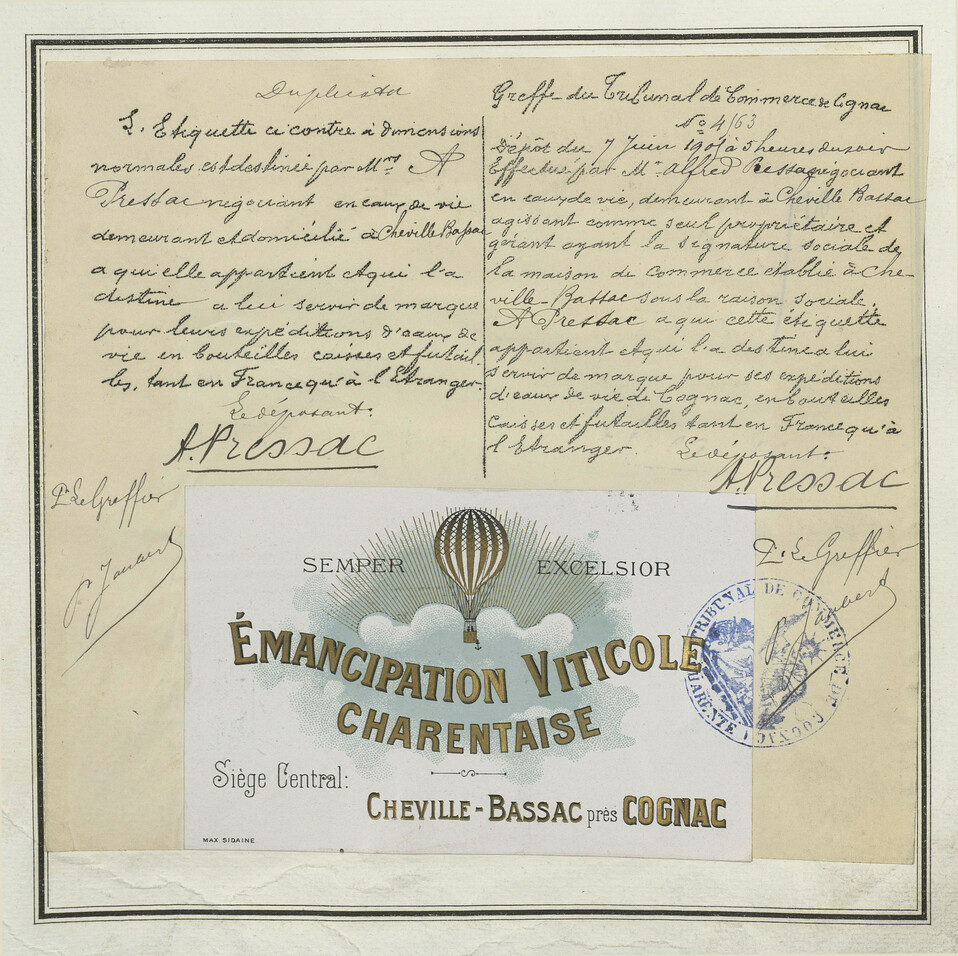 Duplicata
L. Etiquette ci contre à dimensions
normales est destinée par Mr A
Pressac négociant en eaux de vie
demeurant et domicilié à Cheville Bassac
a qui elle appartient et qui l'a
destine a lui servir de marque
pour leurs expéditions d'eaux de
vie en bouteilles caisses et futail
les, tant en France qu'à l'Etranger.
Le déposant.
A. Pressac
Pr Le Greffier
p. Joubert
Greffe du Tribunal de Commerce de Cognac
No 4163
Dépôt du 7 Juin à 5 heures du soir
Effectué par Mr Alfred Pressac négociant
en eaux de vie, demeurant à Cheville Bassac
agissant comme seul propriétaire et
gérant ayant la signature sociale de
la maison de commerce établie à Che
ville-Bassac sous la raison sociale.
A Pressac a qui cette étiquette
appartient et qui l'a destine a lui
servir de marque pour ses expéditions
d'eaux de vie de Cognac, en bouteilles
caisses et futailles tant en France qu'à
l'Etranger.
Le déposant.
A. Pressac
Pr Le Greffier
p. Joubert
SEMPER EXCELSIOR
ÉMANCIPATION VITICOLE
CHARENTAISE
Siège Central:
CHEVILLE-BASSAC près COGNAC
MAX. SIDAINE
TRIBUNAL DE COMMERCE DE COGNAC (CHARENTE)